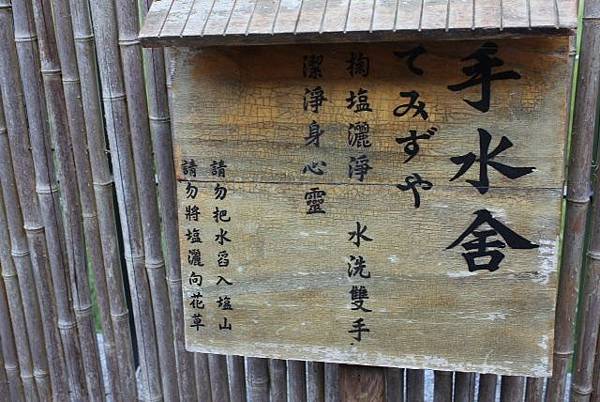 手水舍
てみずや
掬塩灑淨 水洗雙手
潔淨身心靈
請勿把水舀入塩山
請勿將塩灑向花草